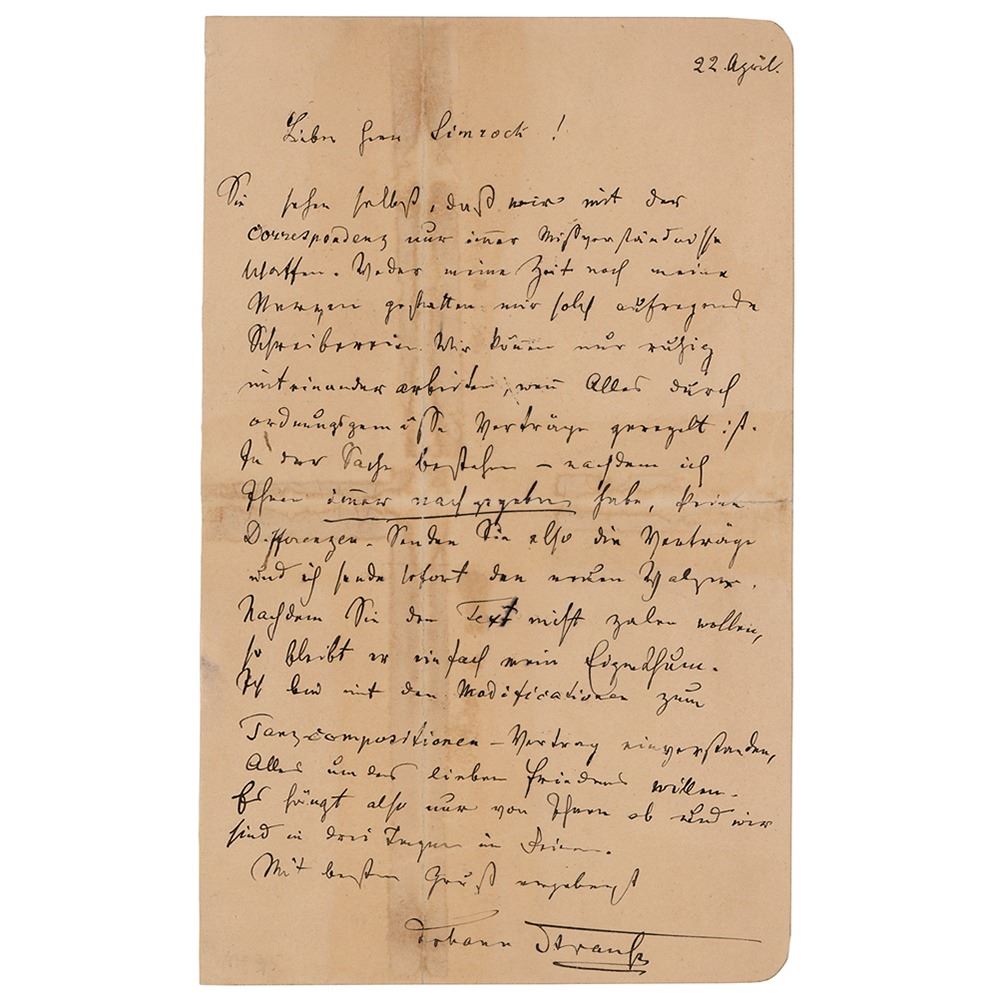 22. April.
Lieber Herr Simrock !
Sie sehen selbst, daß wir mit der
Correspondenz nur immer Mißverständnisse
schaffen. Weder meine Zeit noch meine
Nerven gestatten mir solch aufregende
Schreibereien. Wir können nur ruhig
miteinander arbeiten, wenn Alles durch
ordnungsgemässe Verträge geregelt ist.
In der Sache bestehen – nachdem ich
Ihnen immer nachgegeben habe, keine
Differenzen. Senden Sie also die Verträge
und ich sende sofort den neuen Walzer.
Nachdem Sie den Text nicht zalen wollen,
so bleibt er einfach mein Eigenthum.
Ich bin mit den Modificationen zum
Tanzcompositionen – Vertrag einverstanden,
Alles um des lieben Friedens willen.
Es hängt also nur von Ihnen ab und wir
sind in drei Tagen im Reinen.
Mit bestem Gruß ergebenst
Johann Strauß